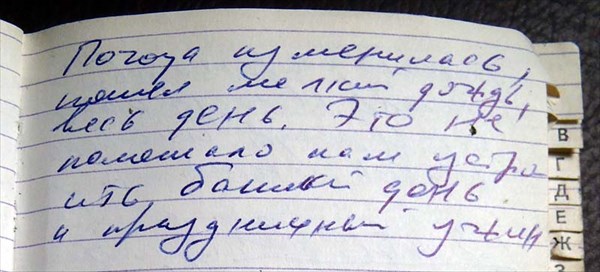 Погода изменилась,
пошел мелкий дождь,
весь день. Это не
помешало нам устро
ить банный день
и праздничный ужин
В
Г
Д
Е
Ж
З